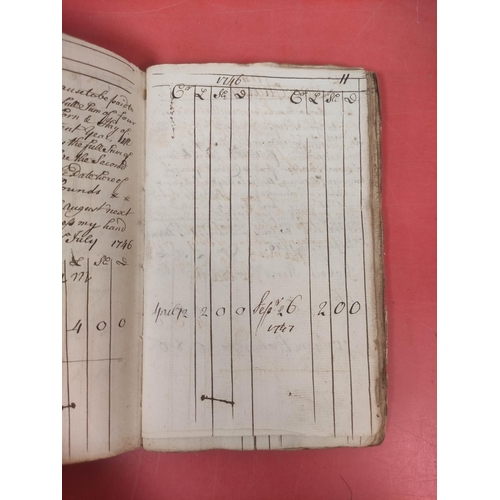 cause to be paid to
full Sum of four
ent Year
the full Sum of
the Second
Date here of
Pounds
August next
my hand
July 1746
£ Sh D
4 0 0
1746 11
Co £ Sh D Co £ Sh D
April 12 2 0 0 Sepr 26 2 0 0
1747